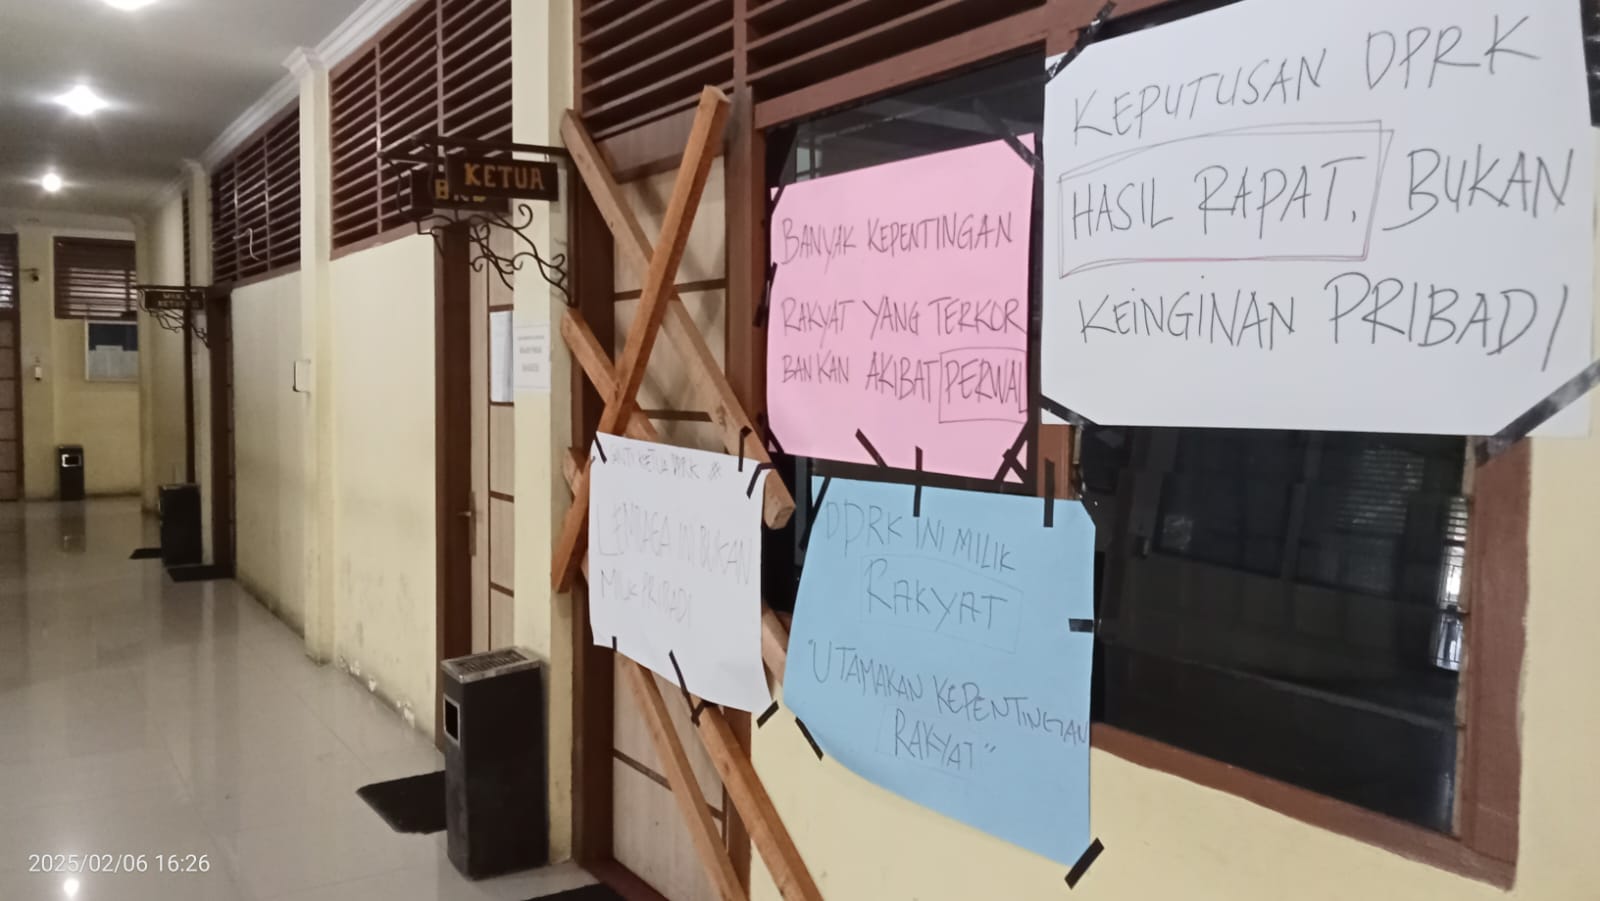 KETUA
WAKIL
KETUA
BANYAK KEPENTINGAN
RAKYAT YANG TERKOR
BANKAN AKIBAT PERWAL
KEPUTUSAN DPRK
HASIL RAPAT, BUKAN
KEINGINAN PRIBADI
KETUA DPRK
LEMBAGA INI BUKAN
MILIK PRIBADI
DPRK INI MILIK
RAKYAT
"UTAMAKAN KEPENTINGAN
RAKYAT"
2025/02/06 16:26